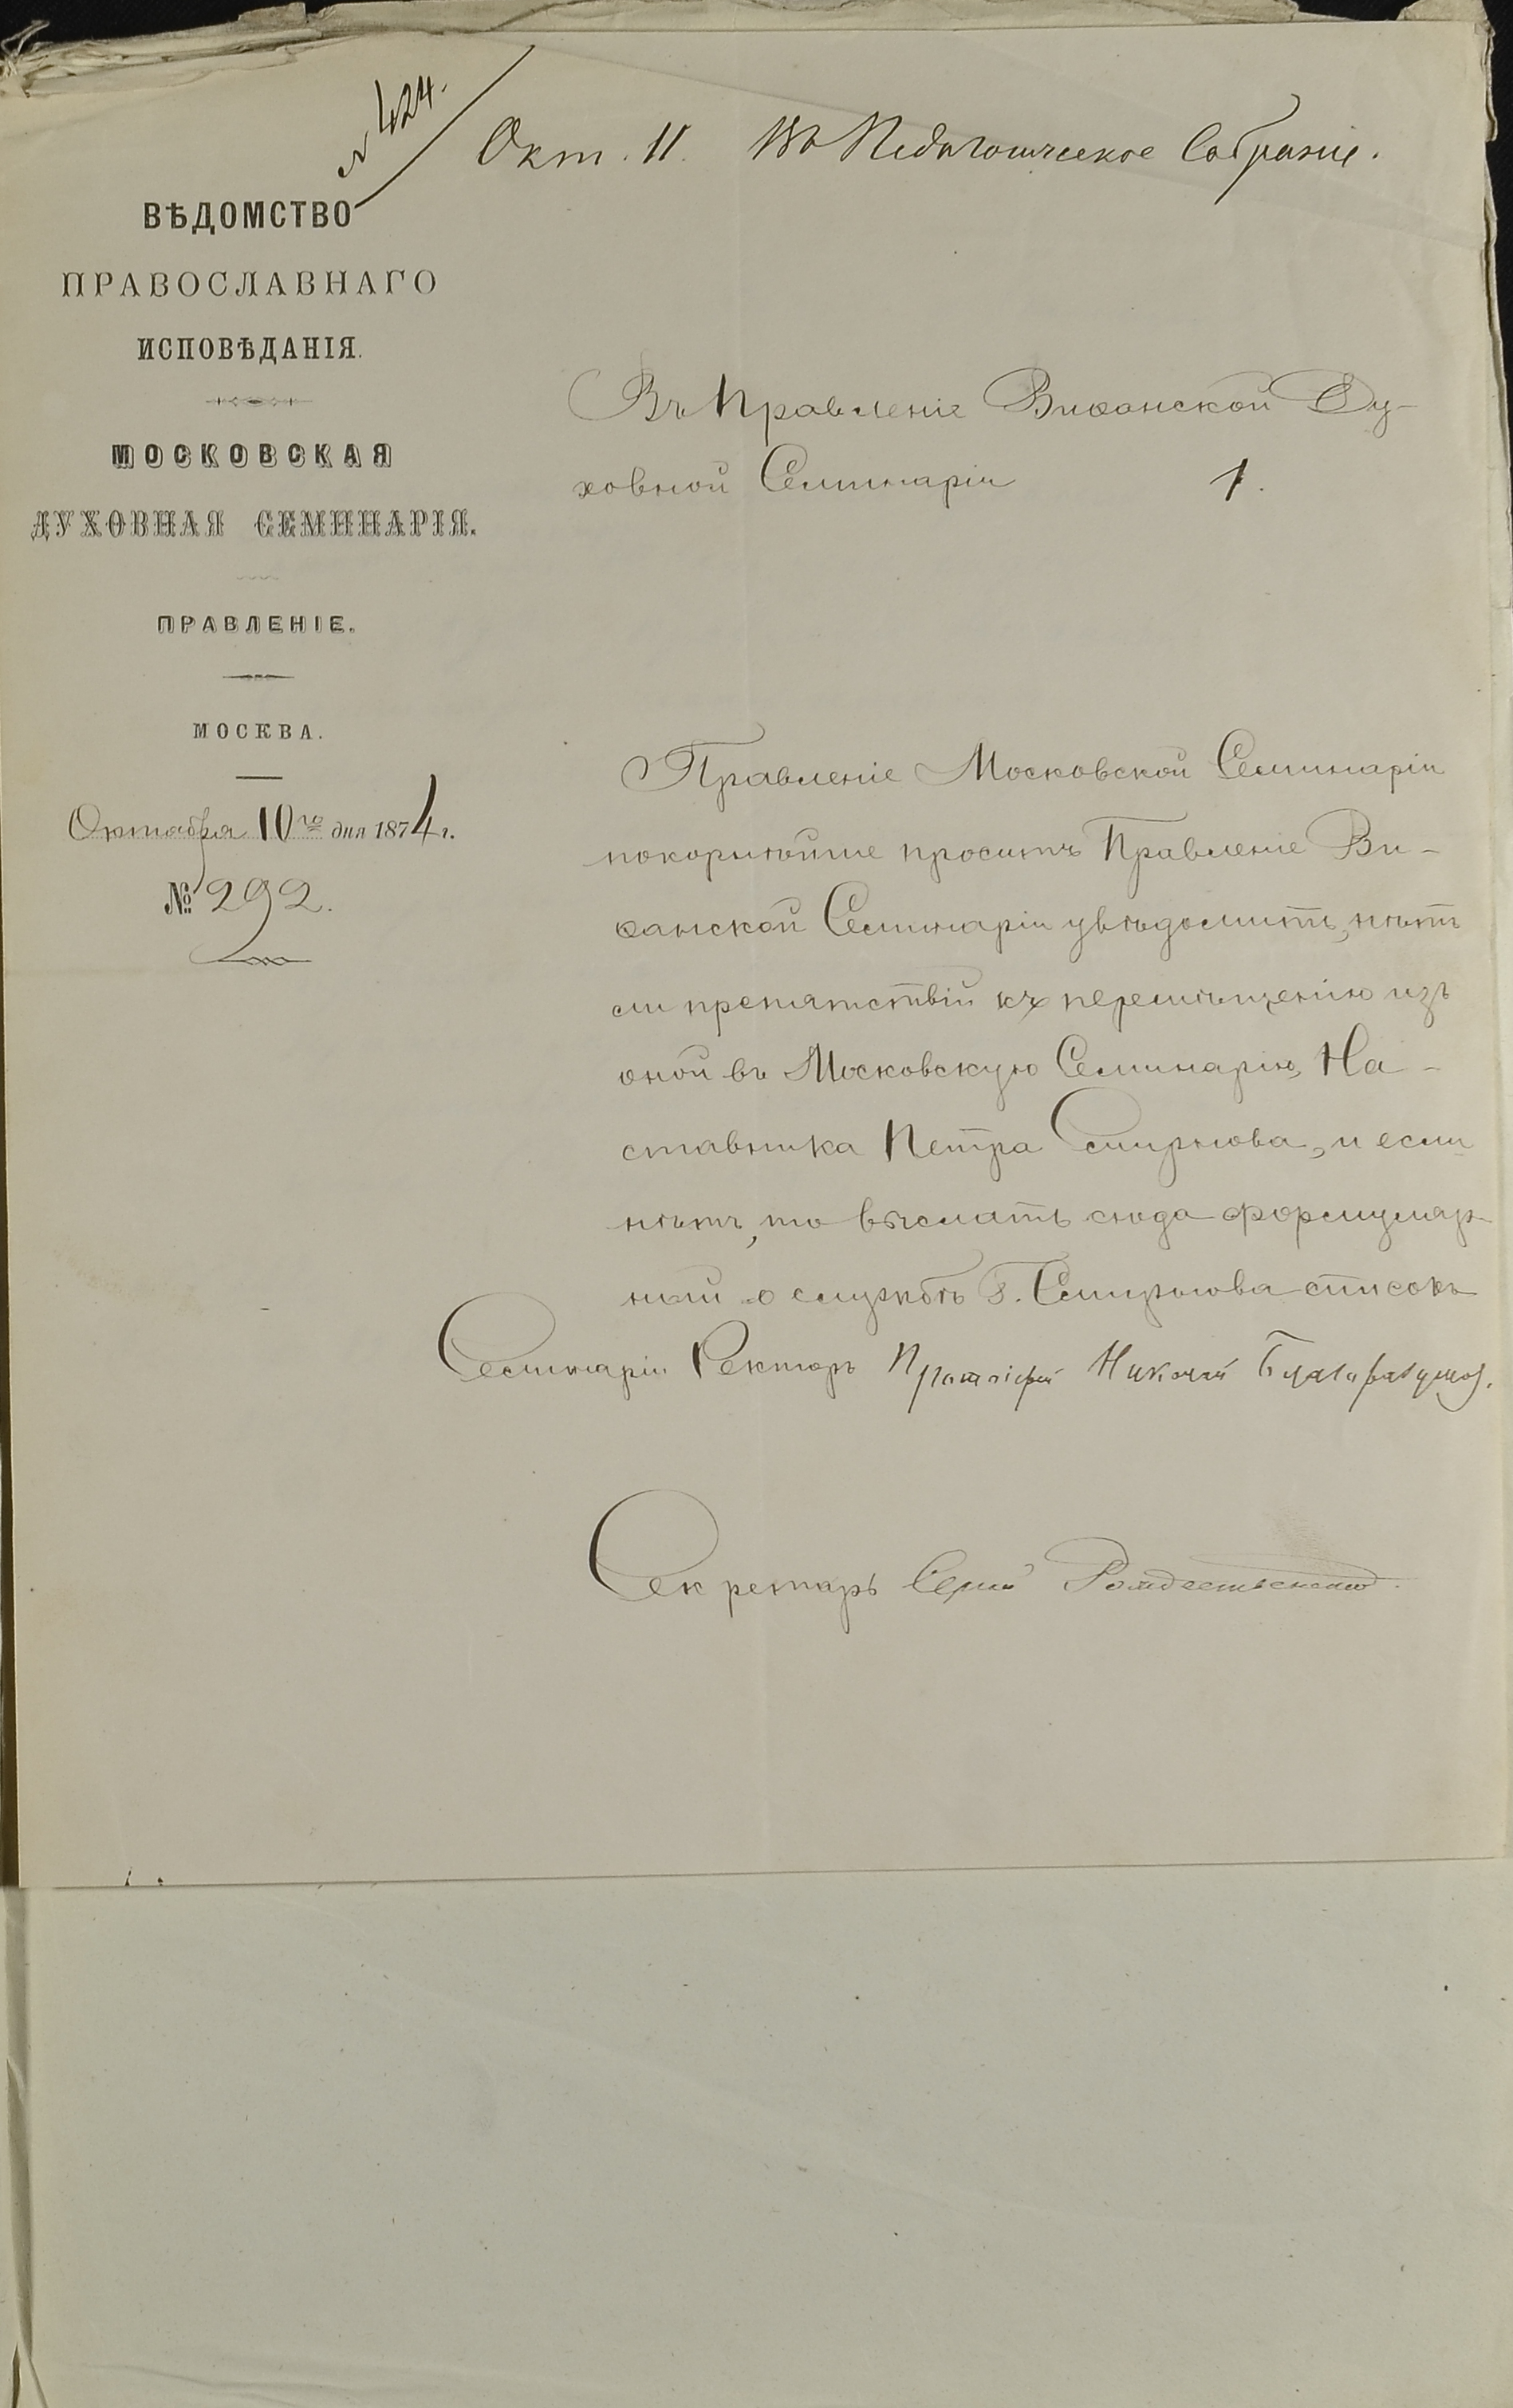 № 424.
Окт. 11. Въ Педагогическое Собраніе.
ВѢДОМСТВО
ПРАВОСЛАВНАГО
ИСПОВѢДАНІЯ.
МОСКОВСКАЯ
ДУХОВНАЯ СЕМИНАРІЯ.
ПРАВЛЕНІЕ.
МОСКВА.
Октября 10го дня 1874 г.
№ 292.
Въ Правленіе Виѳанской Ду-
ховной Семинаріи 1.
Правленіе Московской Семинаріи
покорнѣйше проситъ Правленіе Ви-
ѳанской Семинаріи увѣдомить, нѣтъ
ли препятствій къ перемѣщенію изъ
оной въ Московскую Семинарію, На-
ставника Петра Смирнова, и если
нѣтъ, то выслать сюда формуляр-
ный о службѣ Г. Смирнова списокъ
Семинаріи Ректоръ Протоіерей Николай Благоразумов.
Секретарь Сергѣй Рождественскій.